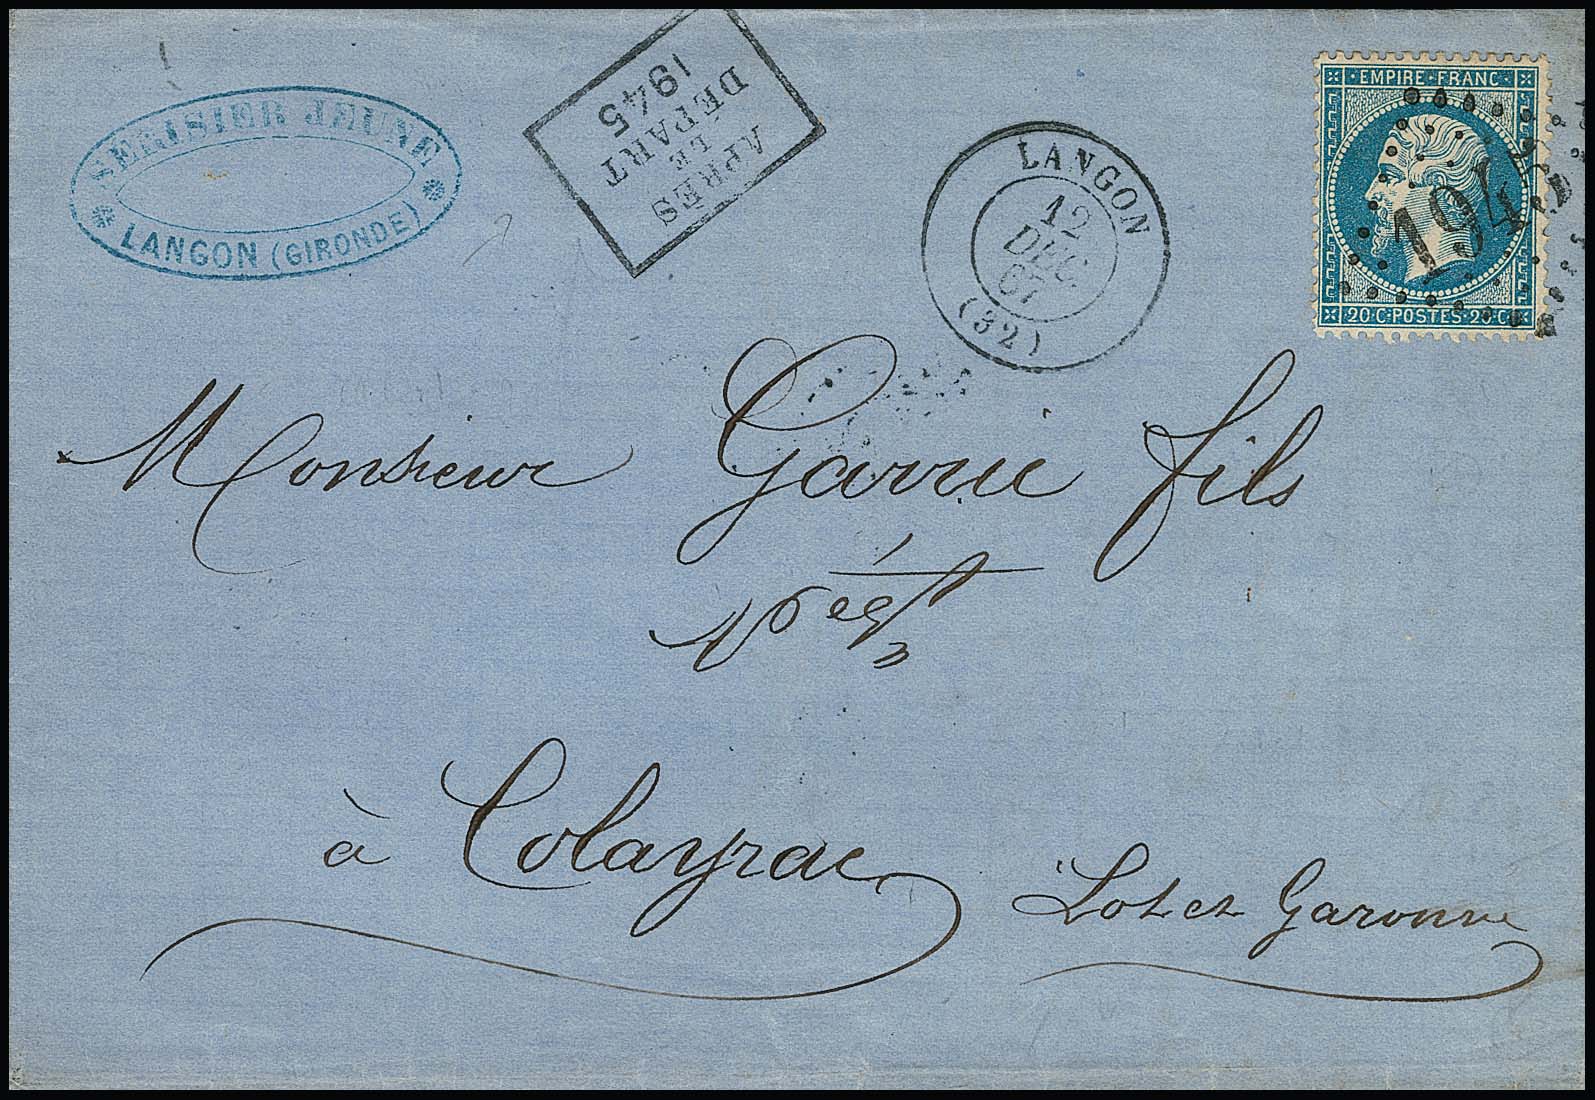 SEMISIER JEUNE
LANGON (GIRONDE)
APRÈS
LE
DÉPART
1945
LANGON
12
DEC
67
(32)
EMPIRE · FRANC
194
20 C · POSTES · 20 C
Monsieur Garric fils
Négt
à Colayrac Lot et Garonne